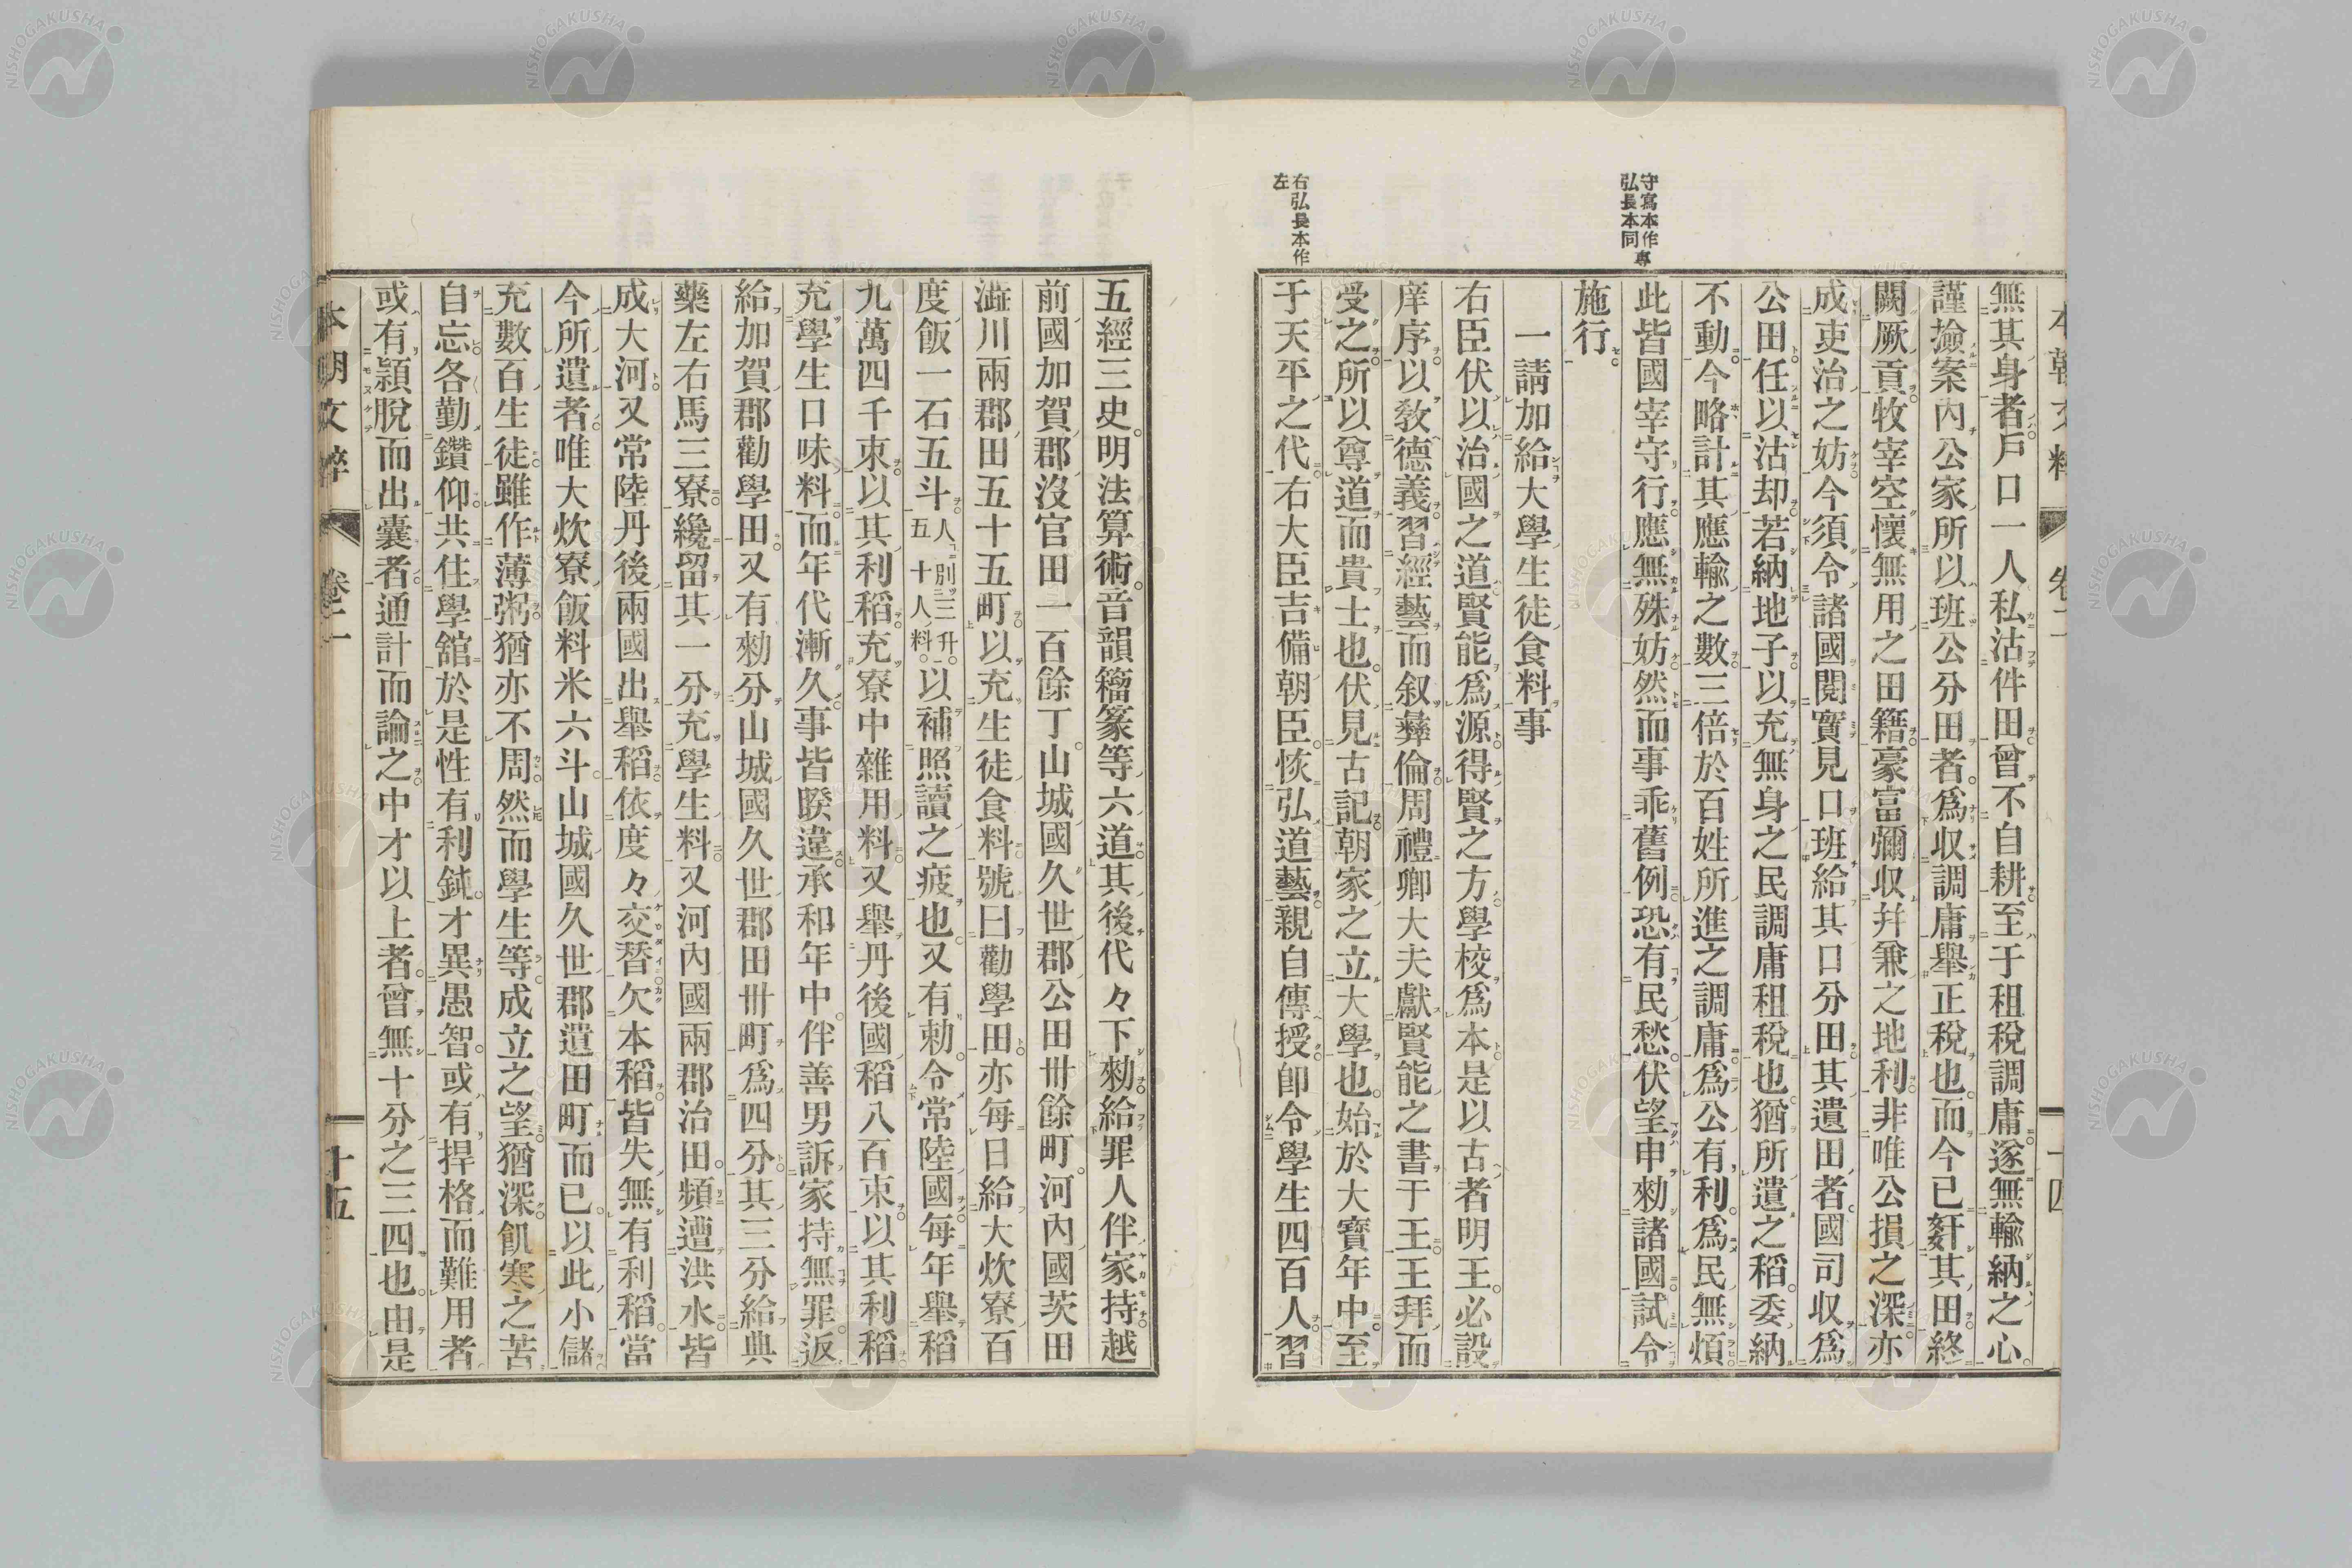 本朝文粹 卷二 十四
無其身者戶口一人私沽件田曾不自耕至于租稅調庸遂無輸納之心
謹撿案內公家所以班公分田者爲収調庸舉正稅也而今已姧其田終
闕厥貢牧宰空懷無用之田籍豪富彌収幷兼之地利非唯公損之深亦
成吏治之妨今須令諸國閱實見口班給其口分田其遺田者國司収爲
公田任以沽却若納地子以充無身之民調庸租稅也猶所遺之稻委納
不動今略計其應輸之數三倍於百姓所進之調庸爲公有利爲民無煩
此皆國宰守行應無殊妨然而事乖舊例恐有民愁伏望申勑諸國試令
施行
一請加給大學生徒食料事
右臣伏以治國之道賢能爲源得賢之方學校爲本是以古者明王必設
庠序以敎德義習經藝而叙彝倫周禮卿大夫獻賢能之書于王王拜而
受之所以尊道而貴士也伏見古記朝家之立大學也始於大寶年中至
于天平之代右大臣吉備朝臣恢弘道藝親自傳授卽令學生四百人習
守寫本作專
弘長本同
右弘長本作
左
五經三史明法算術音韻籀篆等六道其後代々下勑給罪人伴家持越
前國加賀郡沒官田一百餘丁山城國久世郡公田卅餘町河內國茨田
澁川兩郡田五十五町以充生徒食料號曰勸學田亦每日給大炊寮百
度飯一石五斗人別三升五十人料以補照讀之疲也又有勅令常陸國每年舉稻
九萬四千束以其利稻充寮中雜用料又舉丹後國稻八百束以其利稻
充學生口味料而年代漸久事皆睽違承和年中伴善男訴家持無罪返
給加賀郡勸學田又有勑分山城國久世郡田卅町爲四分其三分給典
藥左右馬三寮纔留其一分充學生料又河內國兩郡治田頻遭洪水皆
成大河又常陸丹後兩國出舉稻依度々交替欠本稻皆失無有利稻當
今所遺者唯大炊寮飯料米六斗山城國久世郡遺田町而已以此小儲
充數百生徒雖作薄粥猶亦不周然而學生等成立之望猶深飢寒之苦
自忘各勤鑽仰共住學舘於是性有利鈍才異愚智或有捍格而難用者
或有穎脫而出囊者通計而論之中才以上者曾無十分之三四也由是
本朝文粹 卷二 十五